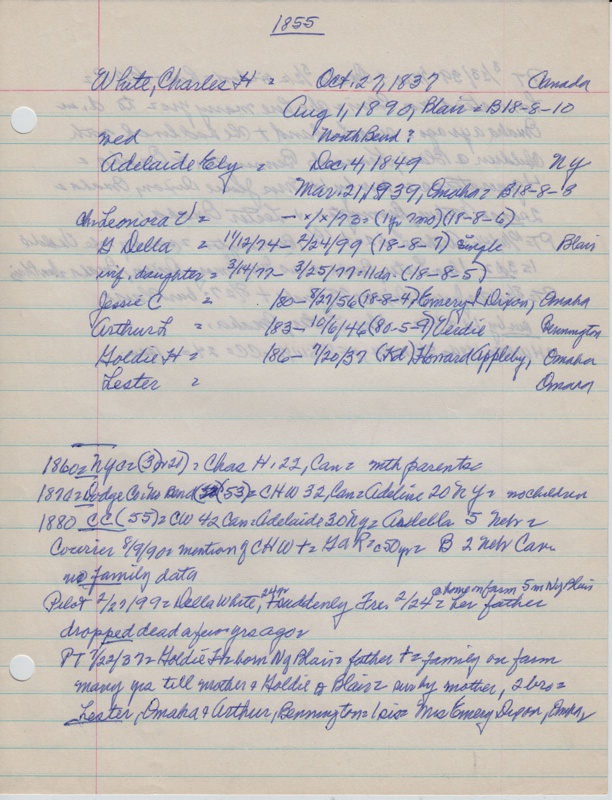 1855
White, Charles H = Oct. 27, 1837 Canada
Aug 1, 1890, Blair = B18-8-10
wed North Bend?
Adelaide Ely = Dec. 4, 1849 NY
Mar. 21, 1939, Omaha = B18-8-3
ch: Leonora V = - x/x/73 = (1yr 7mo) (18-8-6)
G Della = 11/12/74 - 2/24/99 (18-8-7) single Blair
inf. daughter = 3/14/77 - 3/25/77 = 11 ds. (18-8-5)
Jessie C = /80 - 8/27/56 (18-8-4) Emery J Dixon, Omaha
Arthur L = /83 - 10/6/46 (80-5-9) Verdie Bennington
Goldie H = /86 - 7/20/37 (Kd) Howard Appleby, Omaha
Lester = Omaha
1860 = NYC = = Chas H. 22, Can = mth parents
1870 = Dodge Co. No Bend (53) = CHW 32, Can = Adeline 20 NY = no children
1880 CC (55) = CW 42 Can = Adelaide 30 NY = Ardella 5 Nebr =
Courier 8/9/90 = mention of CHW + = GAR = c50yr = B 2 Nebr Cav.
no family data
Pilot 2/27/99 = Della White, 24yr + suddenly Fri. 2/24 = @ home on farm 5m NW Blair her father
dropped dead a few yrs ago =
PT 7/22/37 = Goldie H = born NW Blair = father + = family on farm
many yrs till mother & Goldie to Blair = surv by mother, 2 bro =
Lester, Omaha & Arthur, Bennington = 1 sis = Mrs Emery Dixon, Omaha